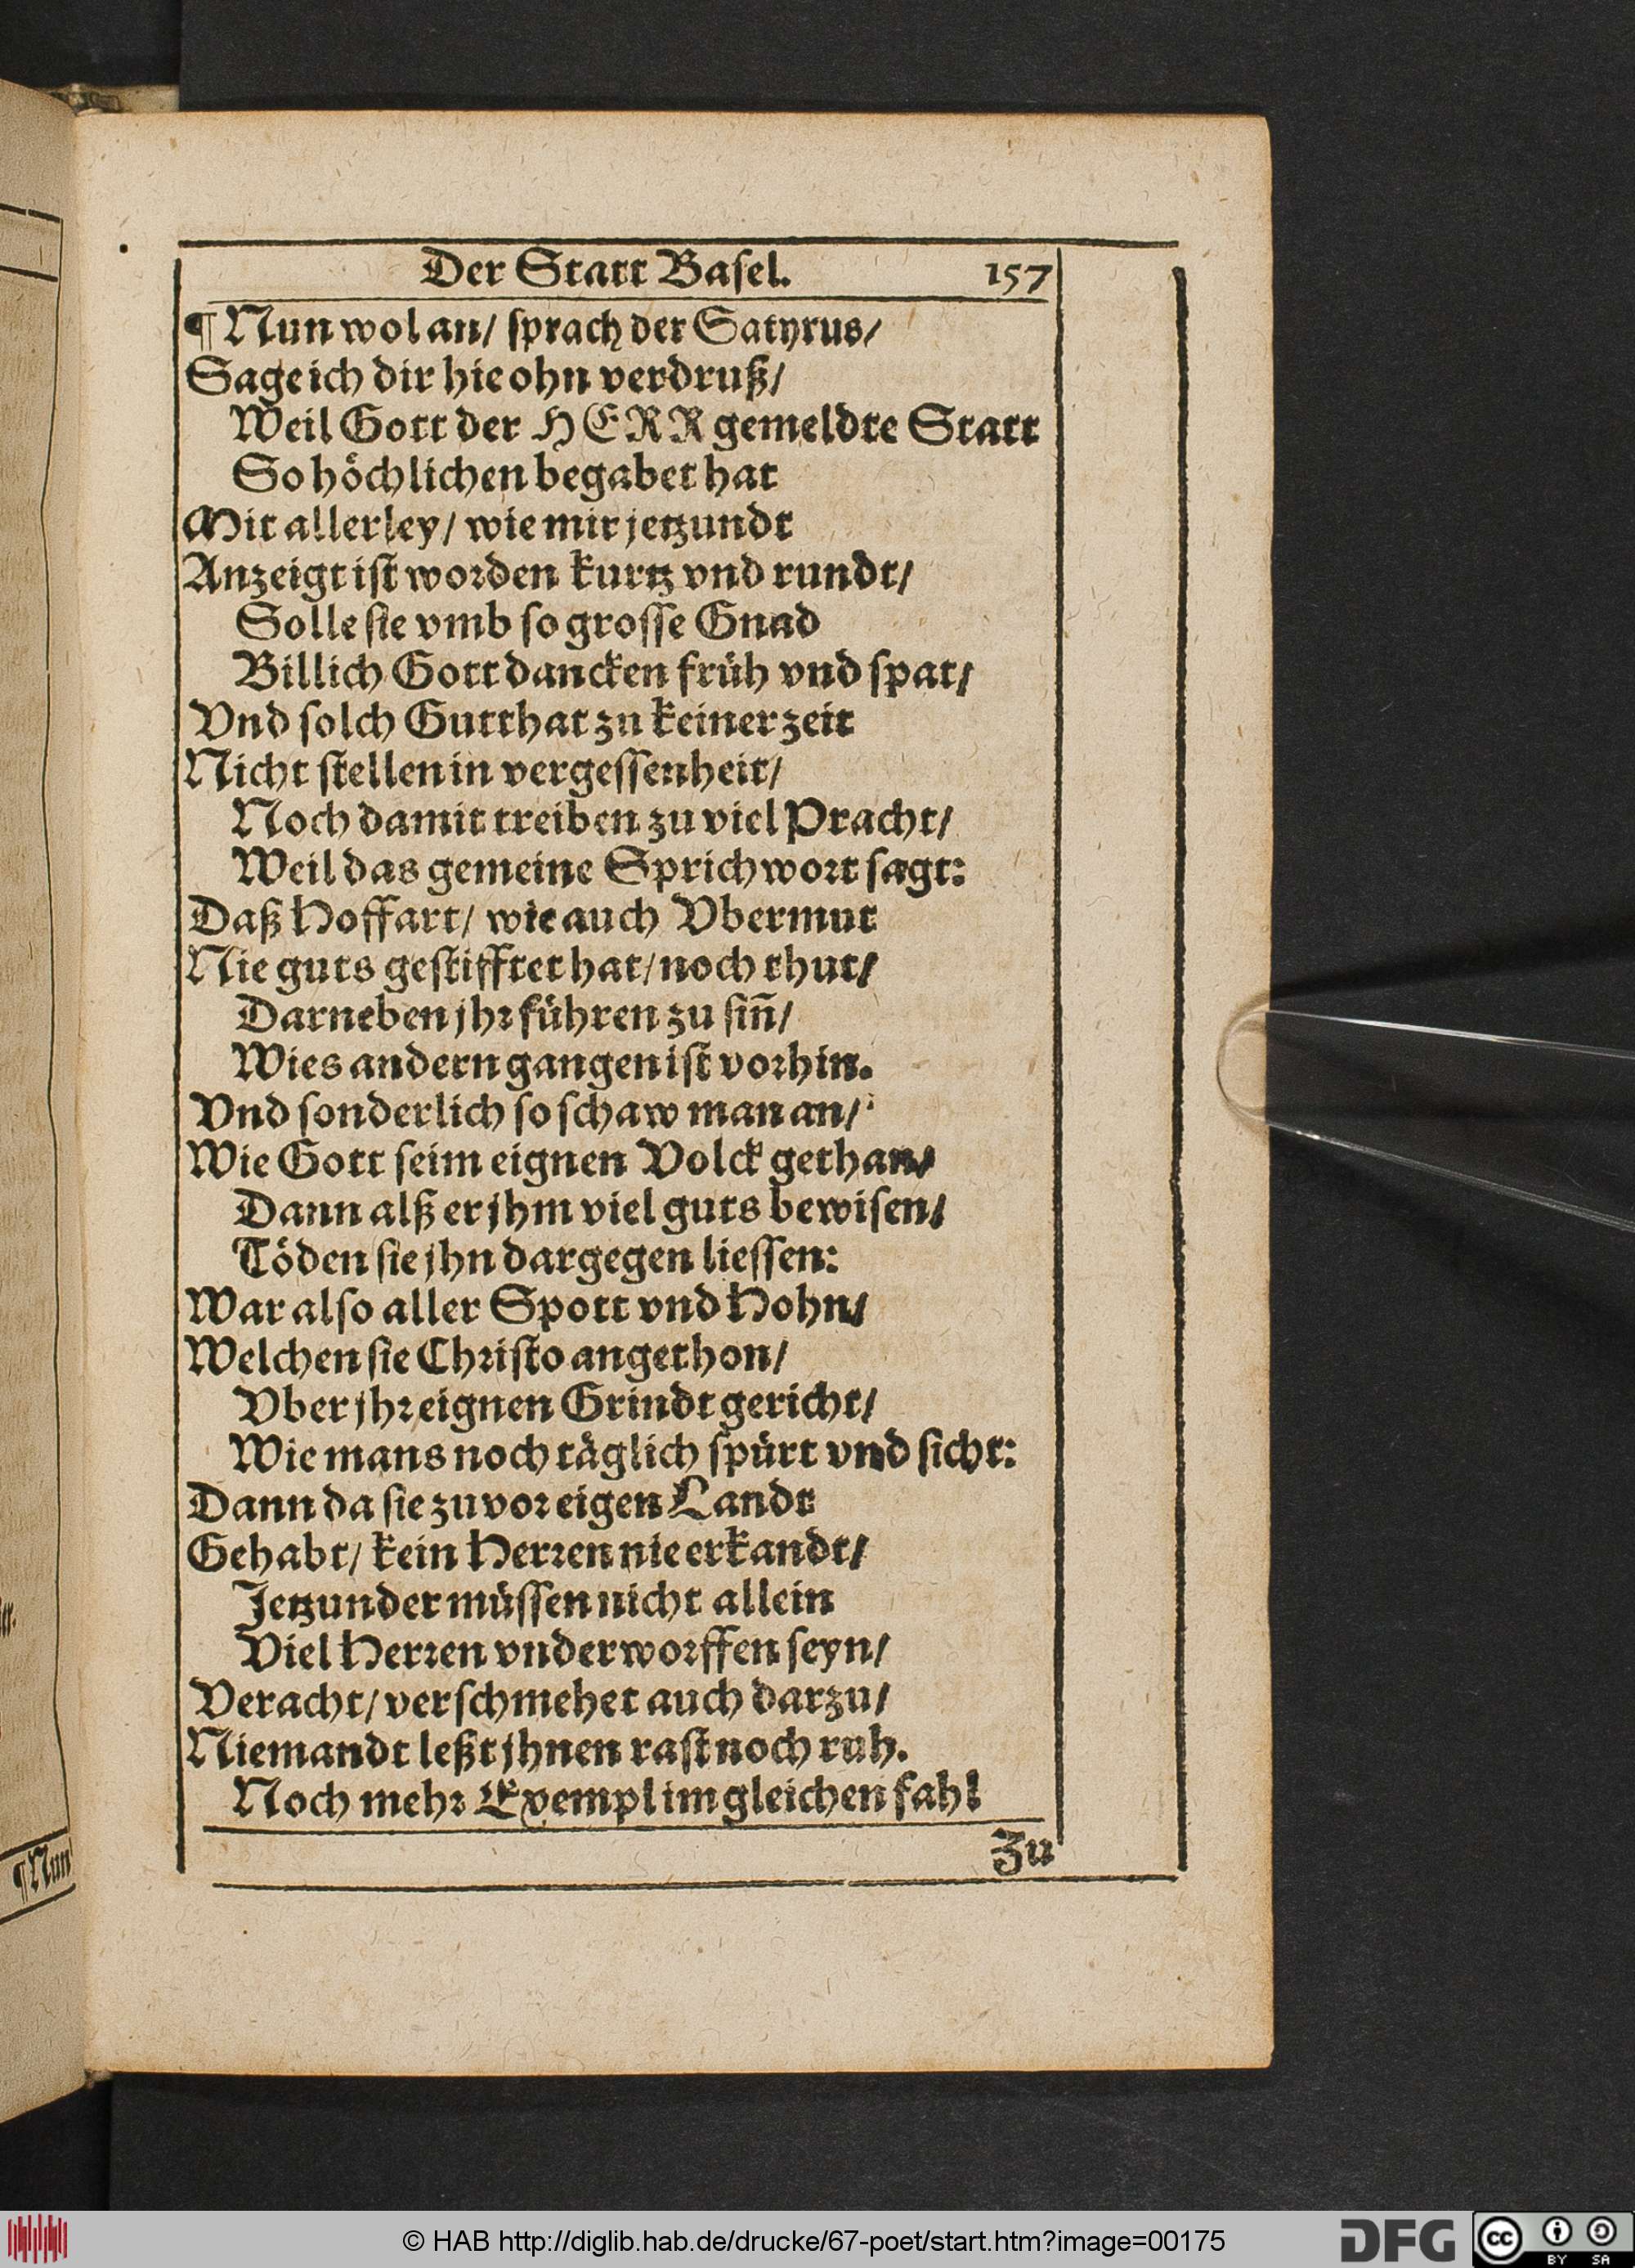 Der Statt Baſel. 157
¶ Nun wol an/ ſprach der Satyrus/
Sage ich dir hie ohn verdruß/
Weil Gott der HERR gemeldte Statt
So höchlichen begabet hat
Mit allerley/ wie mir jetzundt
Anzeigt iſt worden kurtz vnd rundt/
Solle ſie vmb ſo groſſe Gnad
Billich Gott dancken früh vnd ſpat/
Vnd ſolch Gutthat zu keiner zeit
Nicht ſtellen in vergeſſenheit/
Noch damit treiben zu viel Pracht/
Weil das gemeine Sprichwort ſagt:
Daß Hoffart/ wie auch Vbermut
Nie guts geſtifftet hat/ noch thut/
Darneben jhr führen zu ſiñ/
Wies andern gangen iſt vorhin.
Vnd ſonderlich ſo ſchaw man an/
Wie Gott ſeim eignen Volck gethan/
Dann alß er jhm viel guts bewiſen/
Töden ſie jhn dargegen lieſſen:
War alſo aller Spott vnd Hohn/
Welchen ſie Chriſto angethon/
Vber jhr eignen Grindt gericht/
Wie mans noch täglich ſpürt vnd ſicht:
Dann da ſie zuvor eigen Landt
Gehabt/ kein Herren nie erkandt/
Jetzunder müſſen nicht allein
Viel Herren vnderworffen ſeyn/
Veracht/ verſchmehet auch darzu/
Niemandt leßt jhnen raſt noch ruh.
Noch mehr Exempl im gleichen fahl
Zu
¶ Nun
© HAB http://diglib.hab.de/drucke/67-poet/start.htm?image=00175
DFG
cc BY SA